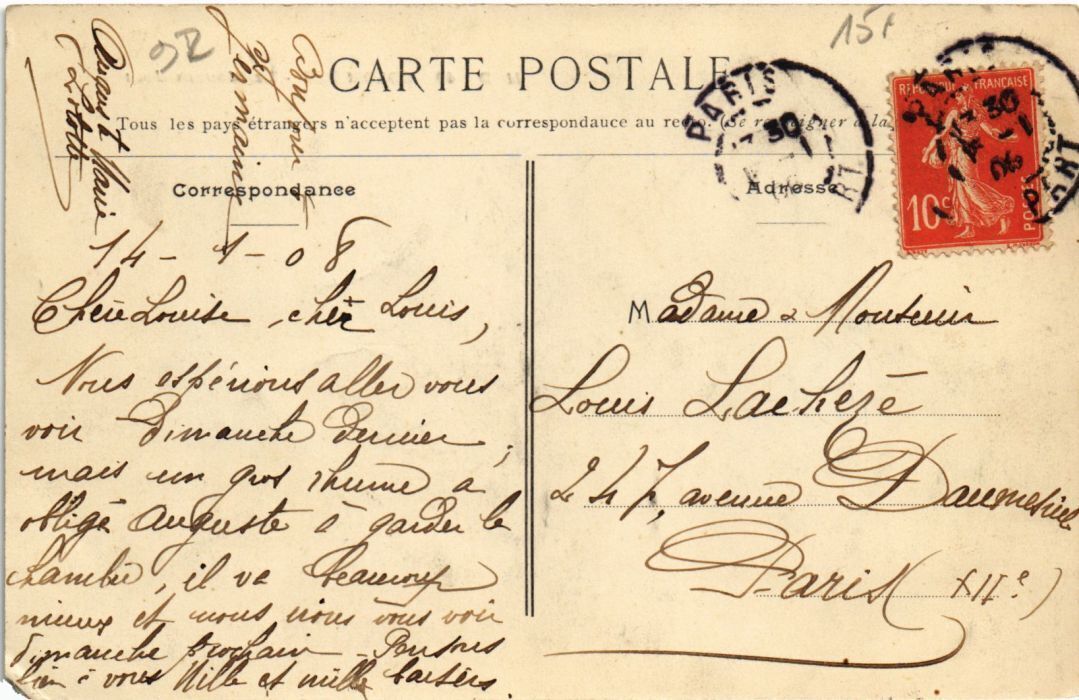 92
15f
CARTE POSTALE
Tous les pays étrangers n'acceptent pas la correspondance au recto. (Se renseigner à la
Correspondance
Adresse
RÉPUBLIQUE FRANÇAISE
10c
POSTES
PARIS
30
PARIS
30
14 - 1 - 08
Chère Louise, cher Louis,
Nous espérions aller vous
voir Dimanche dernier,
mais un gros rhume a
obligé Auguste à garder la
chambre, il va beaucoup
mieux et nous irons vous voir
dimanche prochain - Pensons
bien à vous Mille et mille baisers
Auguste Marie
Lolotte
Bonjour
Germaine
Madame & Monsieur
Louis Lachezé
247, avenue Daumesnil
Paris (XIIe)